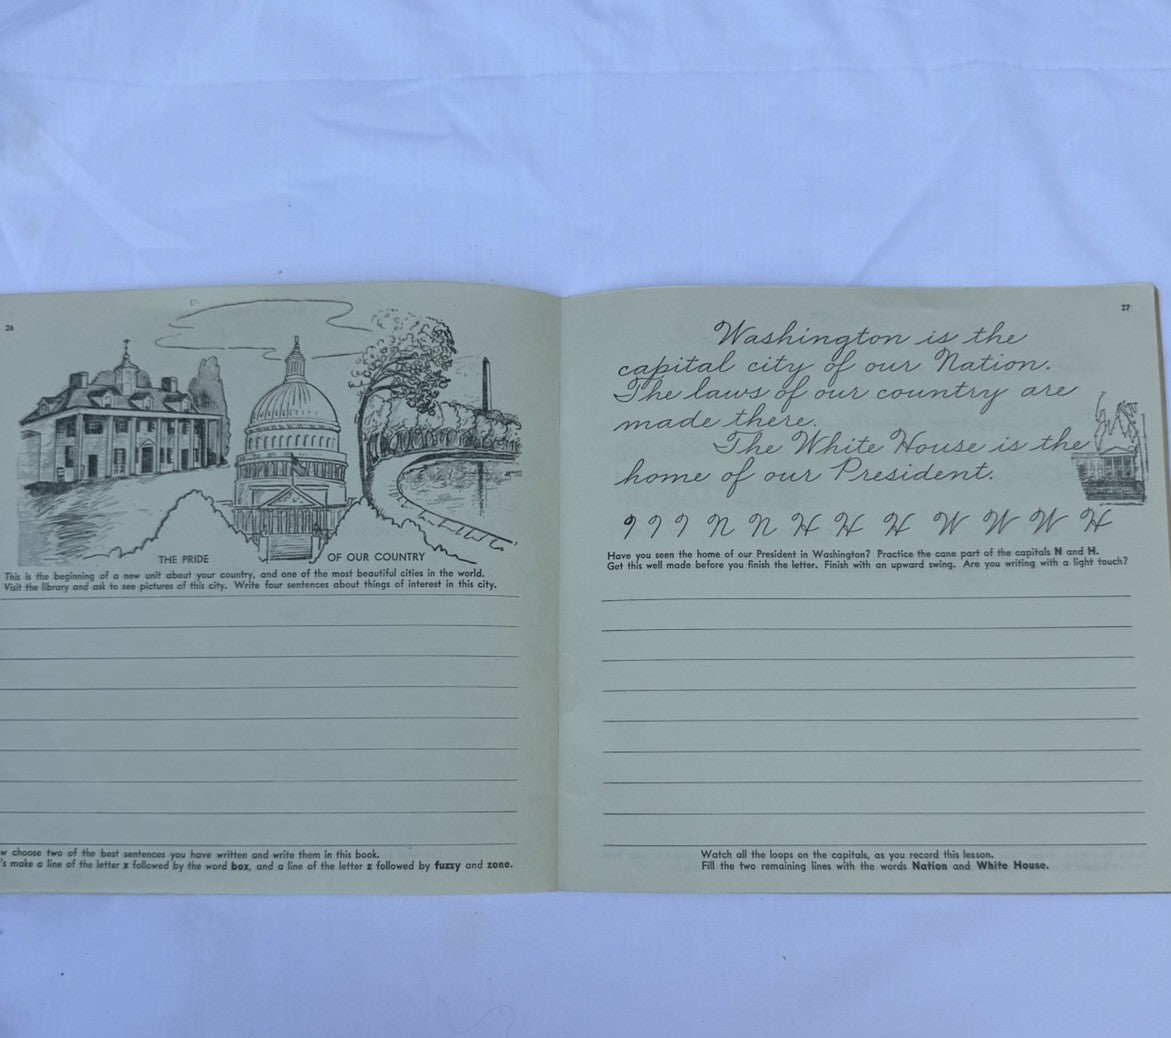 26
THE PRIDE OF OUR COUNTRY
This is the beginning of a new unit about your country, and one of the most beautiful cities in the world.
Visit the library and ask to see pictures of this city. Write four sentences about things of interest in this city.
choose two of the best sentences you have written and write them in this book.
make a line of the letter x followed by the word box, and a line of the letter z followed by fuzzy and zone.
27
Washington is the
capital city of our Nation.
The laws of our country are
made there.
The White House is the
home of our President.
N N H H H W W W H
Have you seen the home of our President in Washington? Practice the cane part of the capitals N and H.
Get this well made before you finish the letter. Finish with an upward swing. Are you writing with a light touch?
Watch all the loops on the capitals, as you record this lesson.
Fill the two remaining lines with the words Nation and White House.